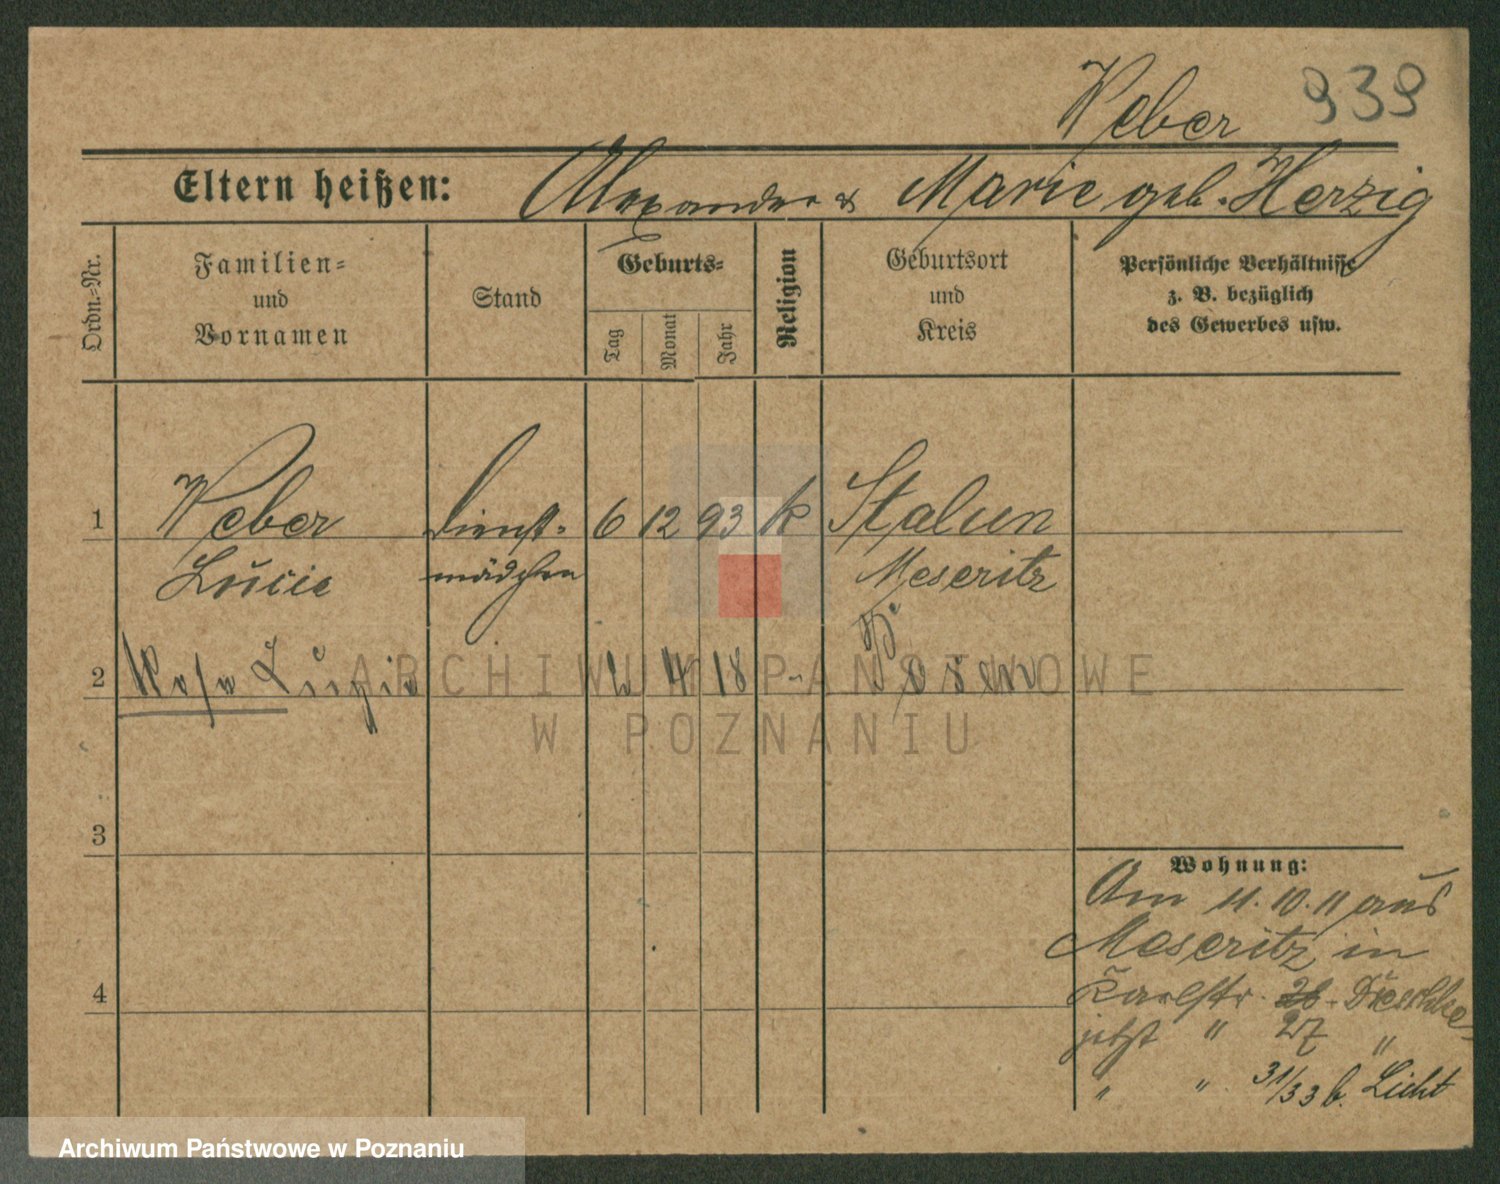 Weber 939
Eltern heißen: Alexander & Marie geb. Herzig
Ordn.-Nr.
Familien-
und
Vornamen
Stand
Geburts-
Tag
Monat
Jahr
Religion
Geburtsort
und
Kreis
Persönliche Verhältnisse
z. B. bezüglich
des Gewerbes usw.
1 Weber Dienst- 6 12 93 k Stalun
Lucie mädchen Meseritz
2 Rosa Luzie 2 4 18 - Posen
ARCHIWUM PAŃSTWOWE
W POZNANIU
3
Wohnung:
Am 11.10.11 aus
Meseritz in
4
Karlstr. 28
jetzt " 27 "
" " 31/33 b. Licht
Archiwum Państwowe w Poznaniu